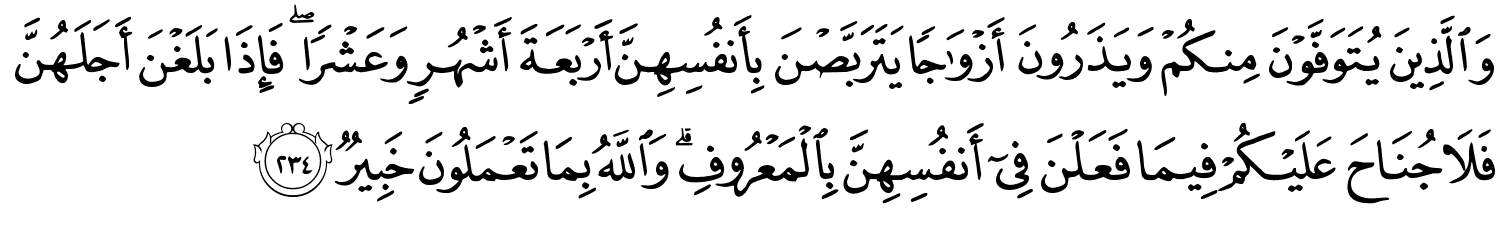 وَٱلَّذِينَ يُتَوَفَّوْنَ مِنكُمْ وَيَذَرُونَ أَزْوَٰجًا يَتَرَبَّصْنَ بِأَنفُسِهِنَّ أَرْبَعَةَ أَشْهُرٍ وَعَشْرًا ۖ فَإِذَا بَلَغْنَ أَجَلَهُنَّ
فَلَا جُنَاحَ عَلَيْكُمْ فِيمَا فَعَلْنَ فِىٓ أَنفُسِهِنَّ بِٱلْمَعْرُوفِ ۗ وَٱللَّهُ بِمَا تَعْمَلُونَ خَبِيرٌ ٢٣٤